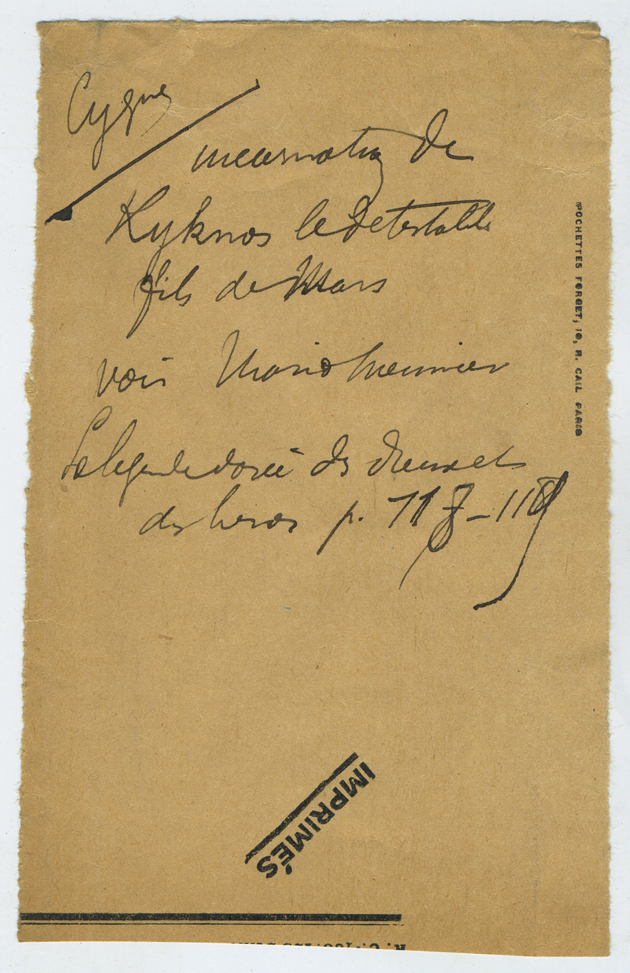 Cygne
incarnation de
Kyknos le détestable
fils de Mars
voir Mario Meunier
La légende dorée des dieux et
des héros p. 118-119
POCHETTES FORGET, 10, R. CAIL PARIS
IMPRIMÉS
R. C.